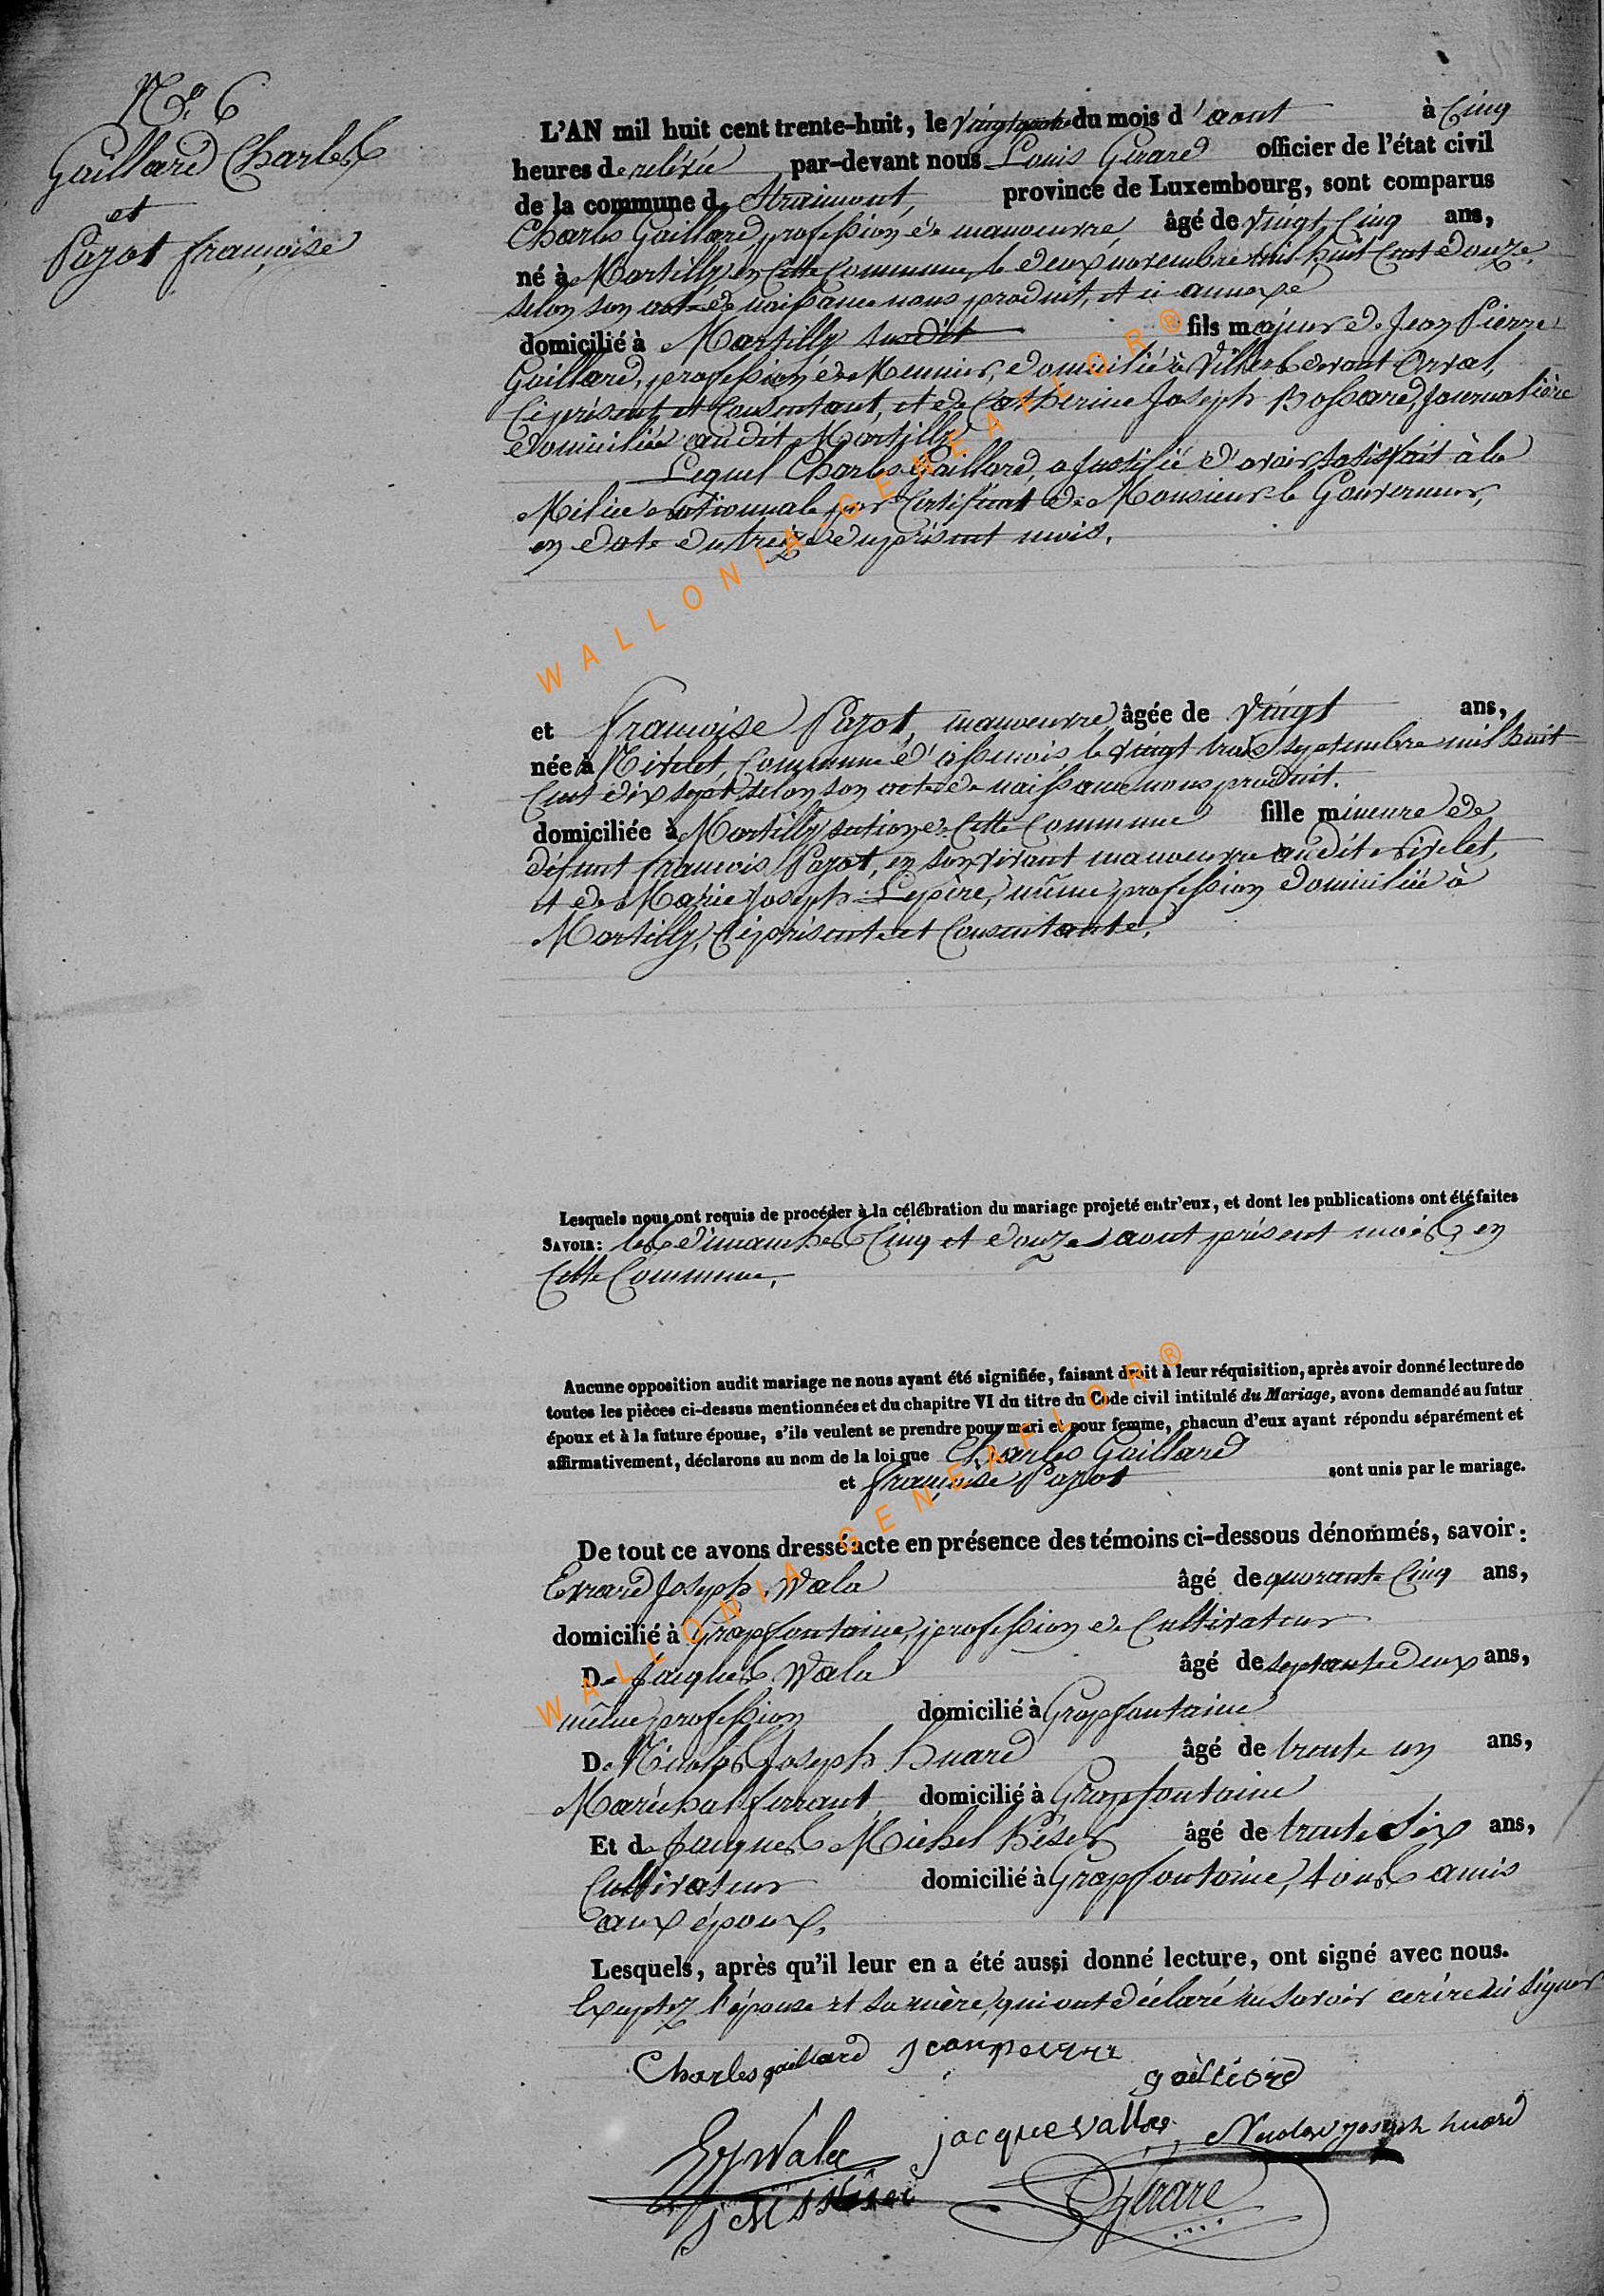 No. 6
Gaillard Charles
et
Pazot françoise
L'AN mil huit cent trente-huit, le du mois d'aout à Cinq
heures de relévée par-devant nous Louis Gérard officier de l'état civil
de la commune de Straimont, province de Luxembourg, sont comparus
Charles Gaillard, profession de manoeuvre, âgé de vingt cinq ans,
né à Martilly en cette Commune, le deux novembre mil huit Cent douze,
selon son acte de naissance nous produit, et ci annexé
domicilié à Martilly susdit fils majeur de Jean Pierre
Gaillard, profession de Meunier, domicilié à Villers devant Orval,
Ci présent et Consentant, et de Catherine Joseph Bossard, Journalière
domiciliée audit Martilly
Lequel Charles Gaillard, a justifié d'avoir satisfait à la
Milice nationnale par Certificat de Monsieur le Gouverneur,
en date du treize du présent mois.
et françoise Pazot, manoeuvre, âgée de vingt ans,
née à Nivelet, Commune d'assenois, le vingt trois septembre mil huit
Cent dix sept selon son acte de naissance nous produit.
domiciliée à Martilly section de cette Commune fille mineure de
défunt francois Pazot, en son vivant manoeuvre audit nivelet,
et de Marie Joseph Lepère, même profession domiciliée à
Martilly, Ci présente et Consentante.
Lesquels nous ont requis de procéder à la célébration du mariage projeté entr'eux, et dont les publications ont été faites
SAVOIR: les dimanches Cinq et douze aout présent mois, en
Cette Commune.
Aucune opposition audit mariage ne nous ayant été signifiée, faisant droit à leur réquisition, après avoir donné lecture de
toutes les pièces ci-dessus mentionnées et du chapitre VI du titre du Code civil intitulé du Mariage, avons demandé au futur
époux et à la future épouse, s'ils veulent se prendre pour mari et pour femme, chacun d'eux ayant répondu séparément et
affirmativement, déclarons au nom de la loi que Charles Gaillard
et françoise Pazot sont unis par le mariage.
De tout ce avons dressé acte en présence des témoins ci-dessous dénommés, savoir:
Evrard Joseph Wala âgé de quarante Cinq ans,
domicilié à Grapfontaine, profession de Cultivateur
De Jacques Wala âgé de septante deux ans,
même profession domicilié à Grapfontaine
De Nicolas Joseph huard âgé de trente un ans,
Maréchal ferrant domicilié à Grapfontaine
Et de Jacques Michel âgé de trente six ans,
Cultivateur domicilié à Grapfontaine, tous amis
aux époux.
Lesquels, après qu'il leur en a été aussi donné lecture, ont signé avec nous.
Exceptez l'épouse et sa mère, qui ont déclaré ne savoir écrire ni signer
Charles gaillard
Ej Wala jacque valla Nicolas joseph huard
LGérard
WALLONIA-GENEAFLOR®
WALLONIA-GENEAFLOR®